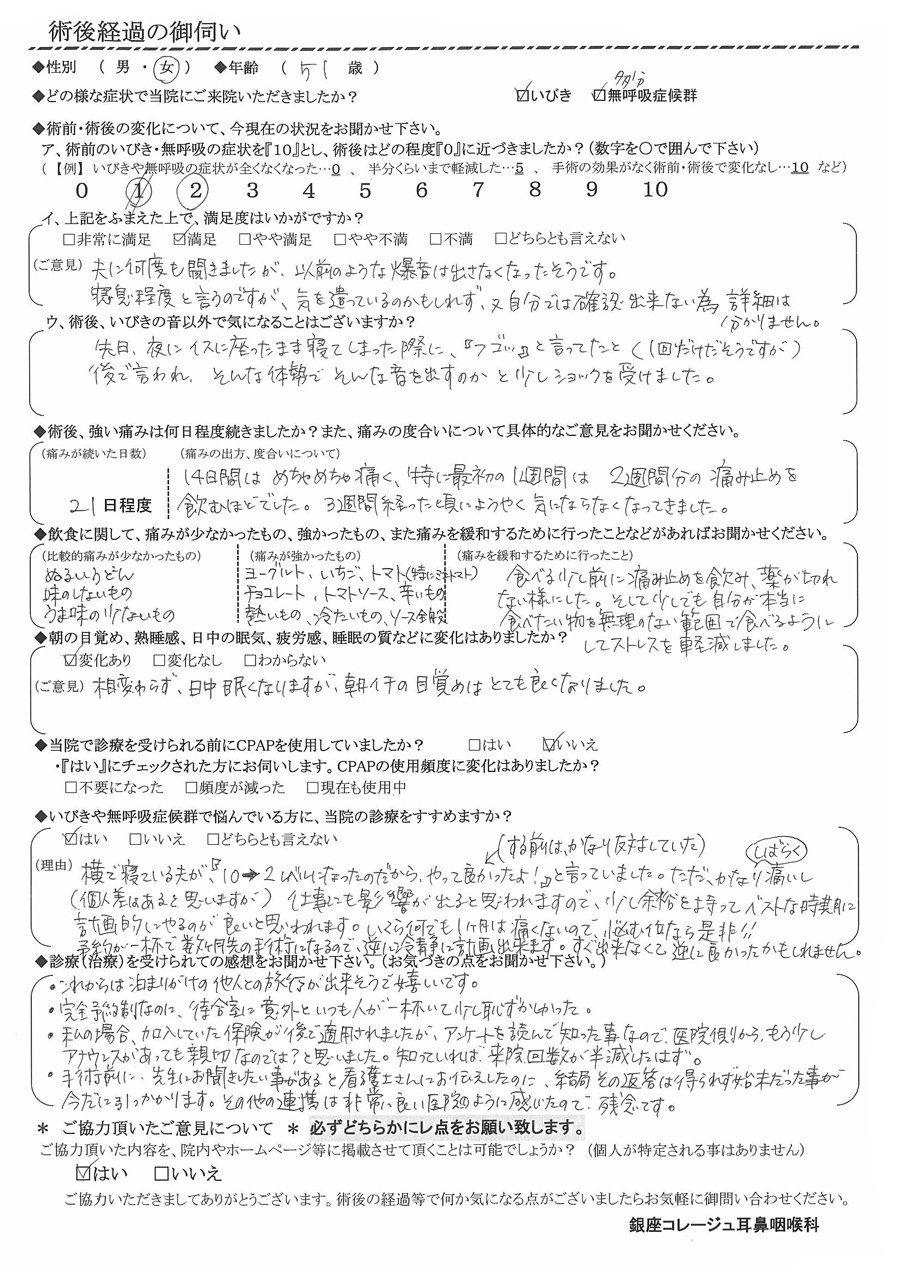 術後経過の御伺い
◆性別 （ 男 ・ 女 ） ◆年齢 （ 51 歳 ）
多分
◆どの様な症状で当院にご来院いただきましたか？ ☑いびき ☑無呼吸症候群
◆術前・術後の変化について、今現在の状況をお聞かせ下さい。
ア、術前のいびき・無呼吸の症状を『10』とし、術後はどの程度『0』に近づきましたか？（数字を〇で囲んで下さい）
（【例】 いびきや無呼吸の症状が全くなくなった…0 、 半分くらいまで軽減した…5 、 手術の効果がなく術前・術後で変化なし…10 など）
0 1 2 3 4 5 6 7 8 9 10
イ、上記をふまえた上で、満足度はいかがですか？
□非常に満足 ☑満足 □やや満足 □やや不満 □不満 □どちらとも言えない
（ご意見） 夫に何度も聞きましたが、以前のような爆音は出さなくなったそうです。
寝息程度と言うのですが、気を遣っているのかもしれず、又自分では確認出来ない為 詳細は
分かりません。
ウ、術後、いびきの音以外で気になることはございますか？
先日、夜にイスに座ったまま寝てしまった際に、『フゴッ』と言ってたと（1回だけだそうですが）
後で言われ、そんな体勢でそんな音を出すのかと少しショックを受けました。
◆術後、強い痛みは何日程度続きましたか？また、痛みの度合いについて具体的なご意見をお聞かせください。
（痛みが続いた日数） （痛みの出方、度合いについて）
14日間は めちゃめちゃ痛く、特に最初の1週間は 2週間分の痛み止めを
21日程度 飲むほどでした。3週間経った頃にようやく気にならなくなってきました。
◆飲食に関して、痛みが少なかったもの、強かったもの、また痛みを緩和するために行ったことなどがあればお聞かせください。
（比較的痛みが少なかったもの） （痛みが強かったもの） （痛みを緩和するために行ったこと）
ぬるいうどん ヨーグルト、いちご、トマト(特にミニトマト) 食べる少し前に痛み止めを飲み、薬が切れ
味のしないもの チョコレート、トマトソース、辛いもの ない様にした。そして少しでも自分が本当に
うま味の少ないもの 熱いもの、冷たいもの、ソース全般 食べたい物を無理のない範囲で食べるように
してストレスを軽減しました。
◆朝の目覚め、熟睡感、日中の眠気、疲労感、睡眠の質などに変化はありましたか？
☑変化あり □変化なし □わからない
（ご意見） 相変わらず、日中眠くなりますが、朝イチの目覚めはとても良くなりました。
◆当院で診療を受けられる前にCPAPを使用していましたか？ □はい ☑いいえ
・『はい』にチェックされた方にお伺いします。CPAPの使用頻度に変化はありましたか？
□不要になった □頻度が減った □現在も使用中
◆いびきや無呼吸症候群で悩んでいる方に、当院の診療をすすめますか？
☑はい □いいえ □どちらとも言えない
（する前は、かなり反対していた）
しばらく
（理由） 横で寝ている夫が、『10→2レベルになったのだから、やって良かったよ！』と言っていました。ただ、かなり痛いし
（個人差はあると思いますが） 仕事にも影響が出ると思われますので、少し余裕を持ってベストな時期に
計画的にやるのが良いと思われます。いくら何でも1ヶ月は痛くないので、悩む位なら是非!!
予約が一杯で数ヶ月先の手術になるので、逆に冷静に計画出来ます。すぐ出来なくて逆に良かったかもしれません。
◆診療（治療）を受けられての感想をお聞かせ下さい。（お気づきの点をお聞かせ下さい。）
・これからは泊まりがけの他人との旅行が出来そうで嬉しいです。
・完全予約制なのに、待合室に意外といつも人が一杯いて少し恥ずかしかった。
・私の場合、加入していた保険が後で適用されましたが、アンケートを読んで知った事なので、医院側から、もう少し
アナウンスがあっても親切なのでは？と思いました。知っていれば、来院回数が半減したはず。
・手術前に、先生にお聞きしたい事があると看護士さんにお伝えしたのに、結局その返答は得られず始末だった事が
今だに引っかかります。その他の連携は非常に良い医院のように感じたので、残念です。
＊ ご協力頂いたご意見について ＊ 必ずどちらかにレ点をお願い致します。
ご協力頂いた内容を、院内やホームページ等に掲載させて頂くことは可能でしょうか？ （個人が特定される事はありません）
☑はい □いいえ
ご協力いただきましてありがとうございます。術後の経過等で何か気になる点がございましたらお気軽に御問い合わせください。
銀座コレージュ耳鼻咽喉科